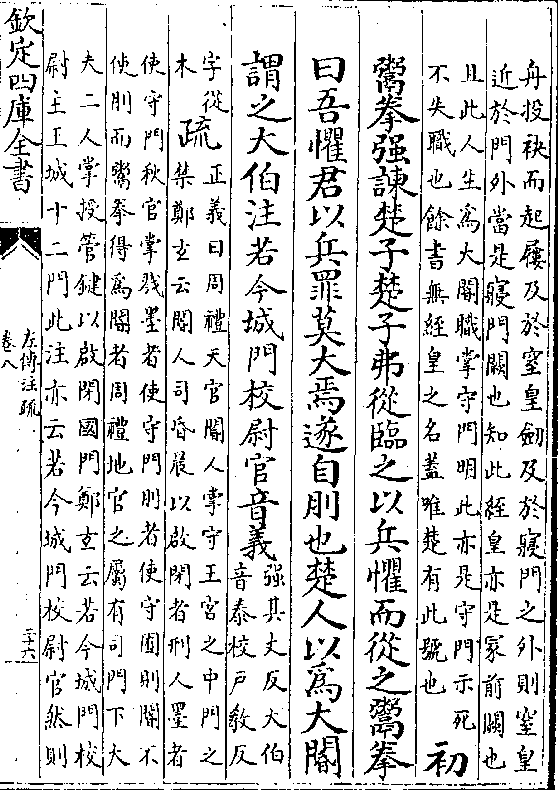 舟投袂而起屨及於窒皇劒及於寢門之外則窒皇
近於門外當是寢門闕也知此經皇亦是冢前闕也
且此人生為大閽職掌守門明此亦是守門示死
不失職也餘書無經皇之名蓋唯楚有此號也
初
鬻拳强諫楚子楚子弗從臨之以兵懼而從之鬻拳
曰吾懼君以兵罪莫大焉遂自刖也楚人以為大閽
謂之大伯注若今城門校尉官音義
强其丈反大伯
音泰校戶敎反
字從
木
疏
正義曰周禮天官閽人掌守王宮之中門之
禁鄭玄云閽人司昏晨以啟閉者刑人墨者
使守門秋官掌戮墨者使守門刖者使守囿則閽不
使刖而鬻拳得為閽者周禮地官之屬有司門下大
夫二人掌授管鍵以啟閉國門鄭玄云若今城門校
尉主王城十二門此注亦云若今城門校尉官然則
欽定四庫全書
左傳注疏
卷八
三十六